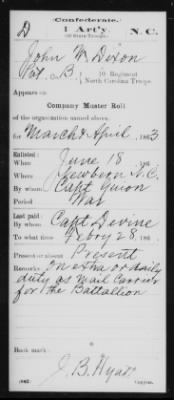 (Confederate.)
D 1 Art'y. N. C.
(10 State Troops.)
John W Dixon
Pvt, Co. B, 10 Regiment
North Carolina Troops.
Appears on
Company Muster Roll
of the organization named above,
for March & April, 1863
Enlisted:
When June 18, 186
Where Newbern N.C.
By whom Capt Guion
Period War
Last paid:
By whom Capt Devine
To what time Febry 28, 186
Present or absent Present
Remarks: On extra or daily
duty as Mail Carrier
for the Battallion
Book mark:
J. B. Hyatt
(642) Copyist.